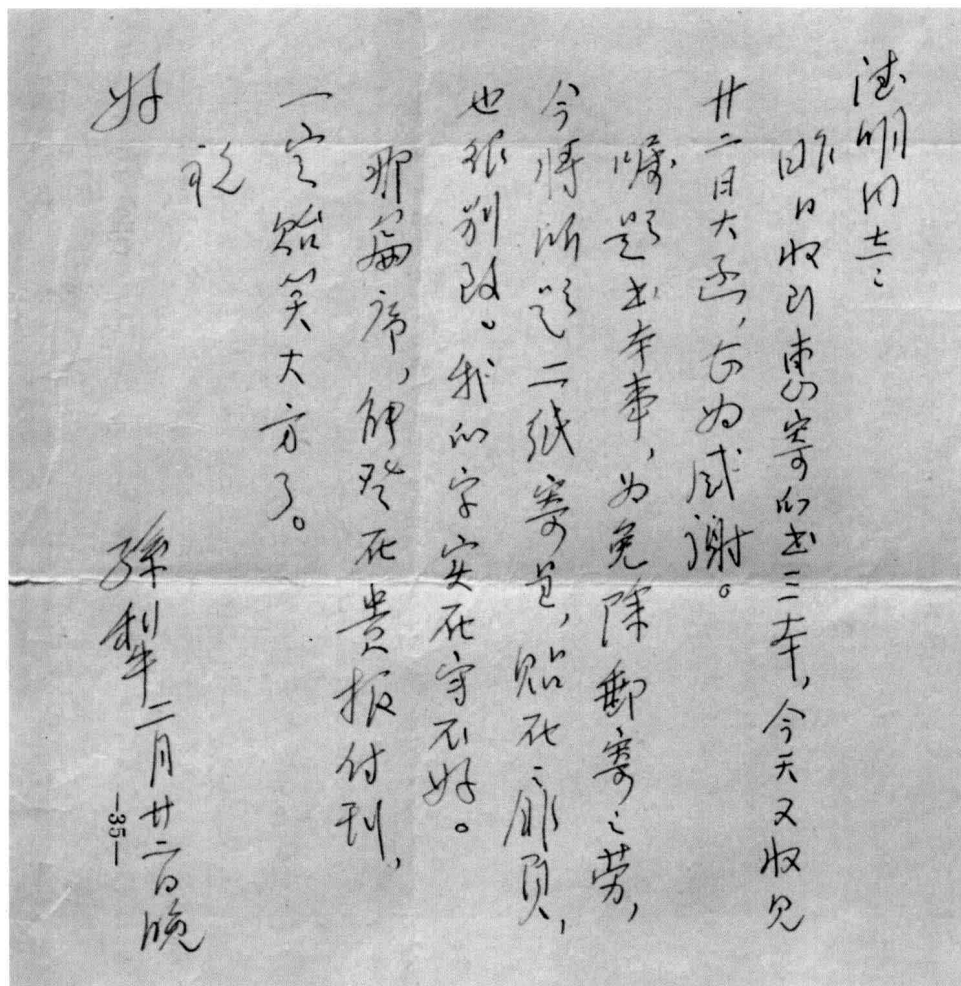 德明同志：
昨日收到惠寄的书三本，今天又收见
廿二日大函，至为感谢。
嘱题书本事，为免除邮寄之劳，
今将所题二纸寄呈，贴在扉页，
也很别致。我的字实在写不好。
那篇序，能登在贵报付刊，
一定贻笑大方了。
祝
好
孙犁 二月廿二日晚
—35—